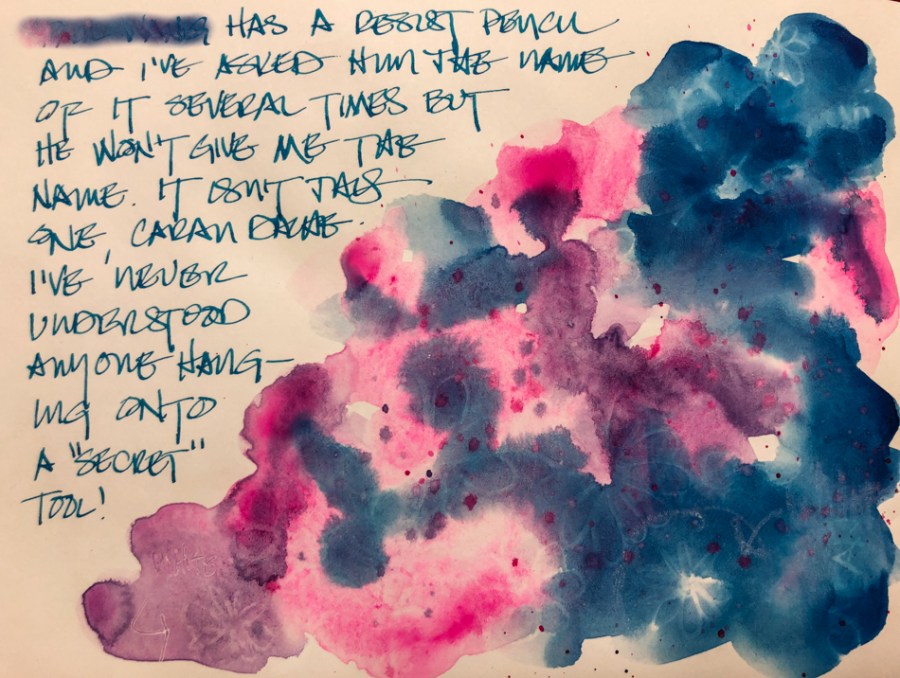 HAS A RESIST PENCIL
AND I'VE ASKED HIM THE NAME
OF IT SEVERAL TIMES BUT
HE WON'T GIVE ME THE
NAME. IT ISN'T THIS
ONE, CARAN DACHE.
I'VE NEVER
UNDERSTOOD
ANYONE HANG-
ING ONTO
A "SECRET"
TOOL!